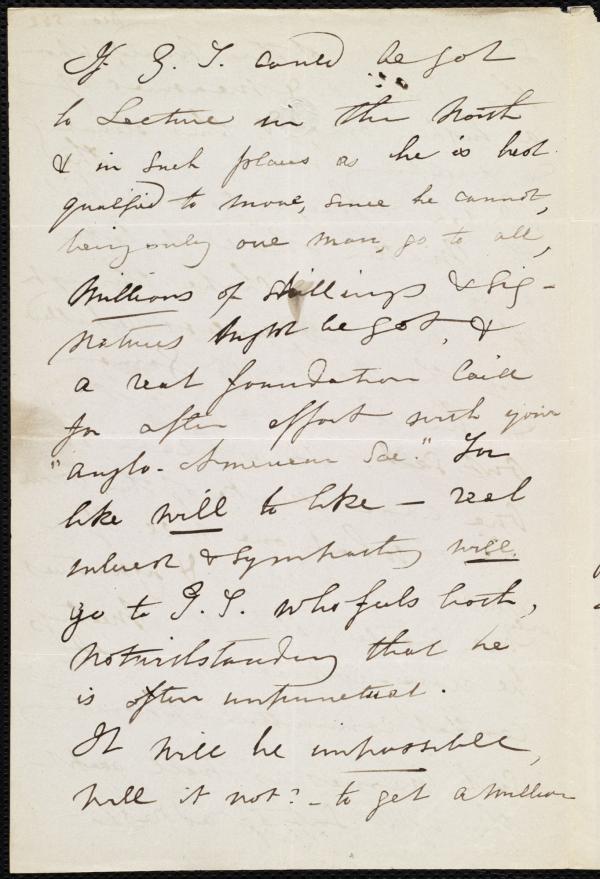 If G. T. could be got
to Lecture in the North
& in such places as he is best
qualified to move, since he cannot,
being only one man, go to all,
Millions of shillings & Sig-
natures might be got, &
a real foundation laid
for after effort with your
"Anglo-American Soc." For
like will to like — real
interest & sympathy will
go to G. T. who feels both,
notwithstanding that he
is often unpunctual.
It will be impossible,
will it not? — to get a million